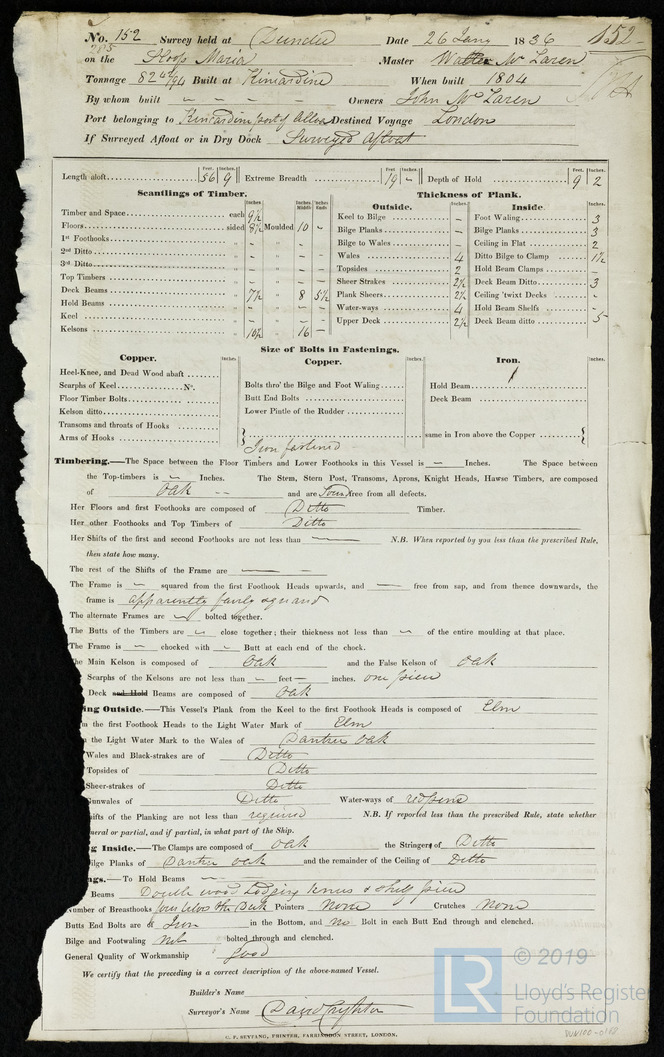 No. 152 Survey held at Dundee Date 26 Jany 1836 152
on the Sloop Maria Master Walter McLaren
Tonnage 82 Built at Kincardine When built 1804
By whom built – – – – – Owners John McLaren
Port belonging to Kincardine port of Alloa Destined Voyage London
If Surveyed Afloat or in Dry Dock Surveyed Afloat
Feet. Inches. Feet. Inches. Feet. Inches.
Length aloft 56 9 Extreme Breadth 19 – Depth of Hold 9 2
Scantlings of Timber.
Inches. Inches Middle Inches Ends
Timber and Space each 9½
Floors sided 8½ Moulded 10 –
1st Foothooks " – " – –
2nd Ditto " – " – –
3rd Ditto " – " – –
Top Timbers " – " – –
Deck Beams " 7½ " 8 5½
Hold Beams " – " – –
Keel " – " – –
Kelsons " 10½ " 16 –
Thickness of Plank.
Outside. Inches
Keel to Bilge –
Bilge Planks –
Bilge to Wales –
Wales 4
Topsides 2
Sheer Strakes 2½
Plank Sheers 2½
Water-ways 4
Upper Deck 2½
Inside. Inches
Foot Waling 3
Bilge Planks 3
Ceiling in Flat 2
Ditto Bilge to Clamp 1½
Hold Beam Clamps –
Deck Beam Ditto 3
Ceiling 'twixt Decks –
Hold Beam Shelfs –
Deck Beam ditto 5
Size of Bolts in Fastenings.
Copper. Inches.
Heel-Knee, and Dead Wood abaft
Scarphs of Keel No.
Floor Timber Bolts
Kelson ditto
Transoms and throats of Hooks
Arms of Hooks
Copper. Inches.
Bolts thro' the Bilge and Foot Waling
Butt End Bolts
Lower Pintle of the Rudder
Iron. Inches.
Hold Beam
Deck Beam
same in Iron above the Copper
Iron fastened
Timbering.—The Space between the Floor Timbers and Lower Foothooks in this Vessel is – Inches. The Space between
the Top-timbers is – Inches. The Stem, Stern Post, Transoms, Aprons, Knight Heads, Hawse Timbers, are composed
of Oak – – and are Sound free from all defects.
Her Floors and first Foothooks are composed of Ditto Timber.
Her other Foothooks and Top Timbers of Ditto
Her Shifts of the first and second Foothooks are not less than – N.B. When reported by you less than the prescribed Rule,
then state how many.
The rest of the Shifts of the Frame are –
The Frame is – squared from the first Foothook Heads upwards, and – free from sap, and from thence downwards, the
frame is apparently fairly squared
The alternate Frames are – bolted together.
The Butts of the Timbers are – close together; their thickness not less than – of the entire moulding at that place.
The Frame is – chocked with – Butt at each end of the chock.
The Main Kelson is composed of Oak and the False Kelson of Oak
Scarphs of the Kelsons are not less than – feet – inches. one piece
Deck and Hold Beams are composed of Oak
ing Outside.—This Vessel's Plank from the Keel to the first Foothook Heads is composed of Elm
m the first Foothook Heads to the Light Water Mark of Elm
the Light Water Mark to the Wales of Dantzic Oak
Wales and Black-strakes are of Ditto
Topsides of Ditto
Sheer-strakes of Ditto
Gunwales of Ditto Water-ways of red pine
hifts of the Planking are not less than required N.B. If reported less than the prescribed Rule, state whether
neral or partial, and if partial, in what part of the Ship.
g Inside.—The Clamps are composed of Oak the Stringers of Ditto
ilge Planks of Dantzic Oak and the remainder of the Ceiling of Ditto
ngs.—To Hold Beams –
Beams Double wood Lodging knees & shelf piece
Number of Breasthooks four below the Deck Pointers None Crutches None
Butts End Bolts are of Iron in the Bottom, and no Bolt in each Butt End through and clenched.
Bilge and Footwaling not bolted through and clenched.
General Quality of Workmanship good
We certify that the preceding is a correct description of the above-named Vessel.
Builder's Name
Surveyor's Name David Crighton
C. F. SEYFANG, PRINTER, FARRINGDON STREET, LONDON.
LR © 2019
Lloyd's Register
Foundation